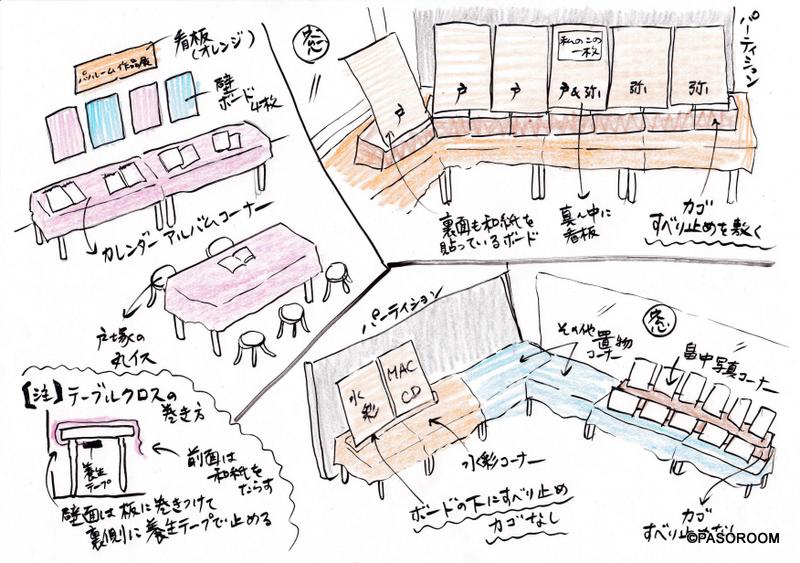 看板
(オレンジ)
パソルーム作品展
壁
ボード
4枚
カレンダーアルバムコーナー
戸塚の
丸イス
【注】テーブルクロスの
巻き方
養生
テープ
前面は
和紙を
たらす
壁面は板に巻きつけて
裏側に養生テープで止める
窓
パーティション
私のこの
一枚
戸
戸
戸&弥
弥
弥
裏面も和紙を
貼っているボード
真ん中に
看板
カゴ
すべり止めを敷く
パーティション
窓
その他
置物
コーナー
畠中写真コーナー
水彩
MAC
CD
水彩コーナー
ボードの下にすべり止め
カゴなし
カゴ
すべり止めなし
©PASOROOM